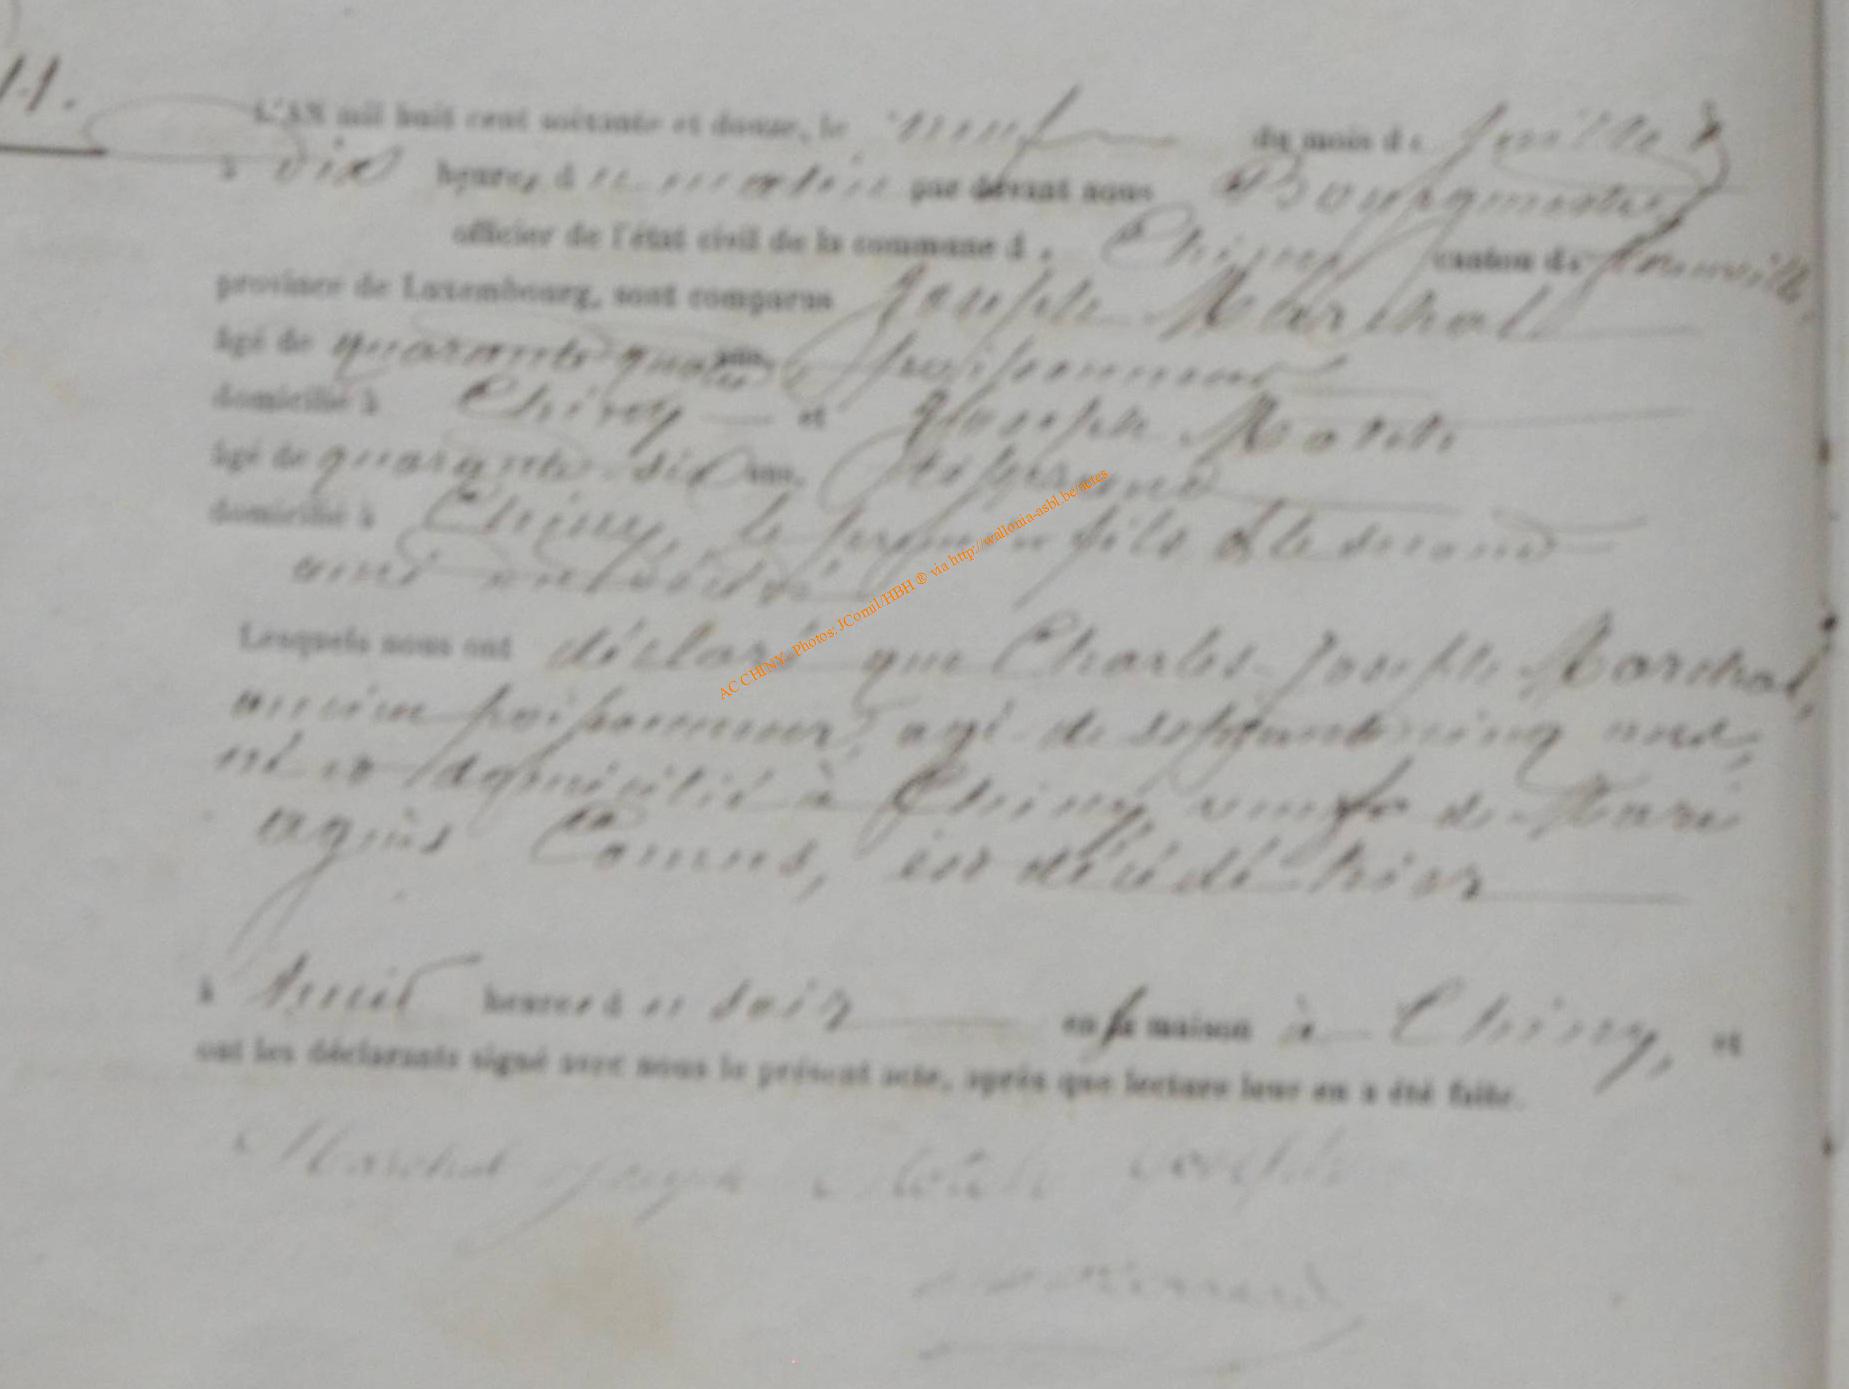 11.
L'AN mil huit cent soixante et douze, le neuf du mois de Juillet
à dix heures du matin par devant nous Bourgmestre
officier de l'état civil de la commune de Chiny canton de Florenville,
province de Luxembourg, sont comparus Joseph Marchal
âgé de quarante quatre ans, poissonneur
domicilié à Chiny et Joseph
âgé de quarante-six ans, tisserand
domicilié à Chiny, le premier fils & le second
ami du décédé
Lesquels nous ont déclaré que Charles Joseph Marchal,
ancien poissonneur, agé de septante cinq ans,
né et domicilié à Chiny, veuf de Marie
agnès Camus, est décédé hier
à heures du soir en sa maison à Chiny, et
ont les déclarants signé avec nous le présent acte, après que lecture leur en a été faite.
Marchal Joseph Joseph
AC CHINY- Photos: JComil/HBH ® via http://wallonia-asbl.be/actes